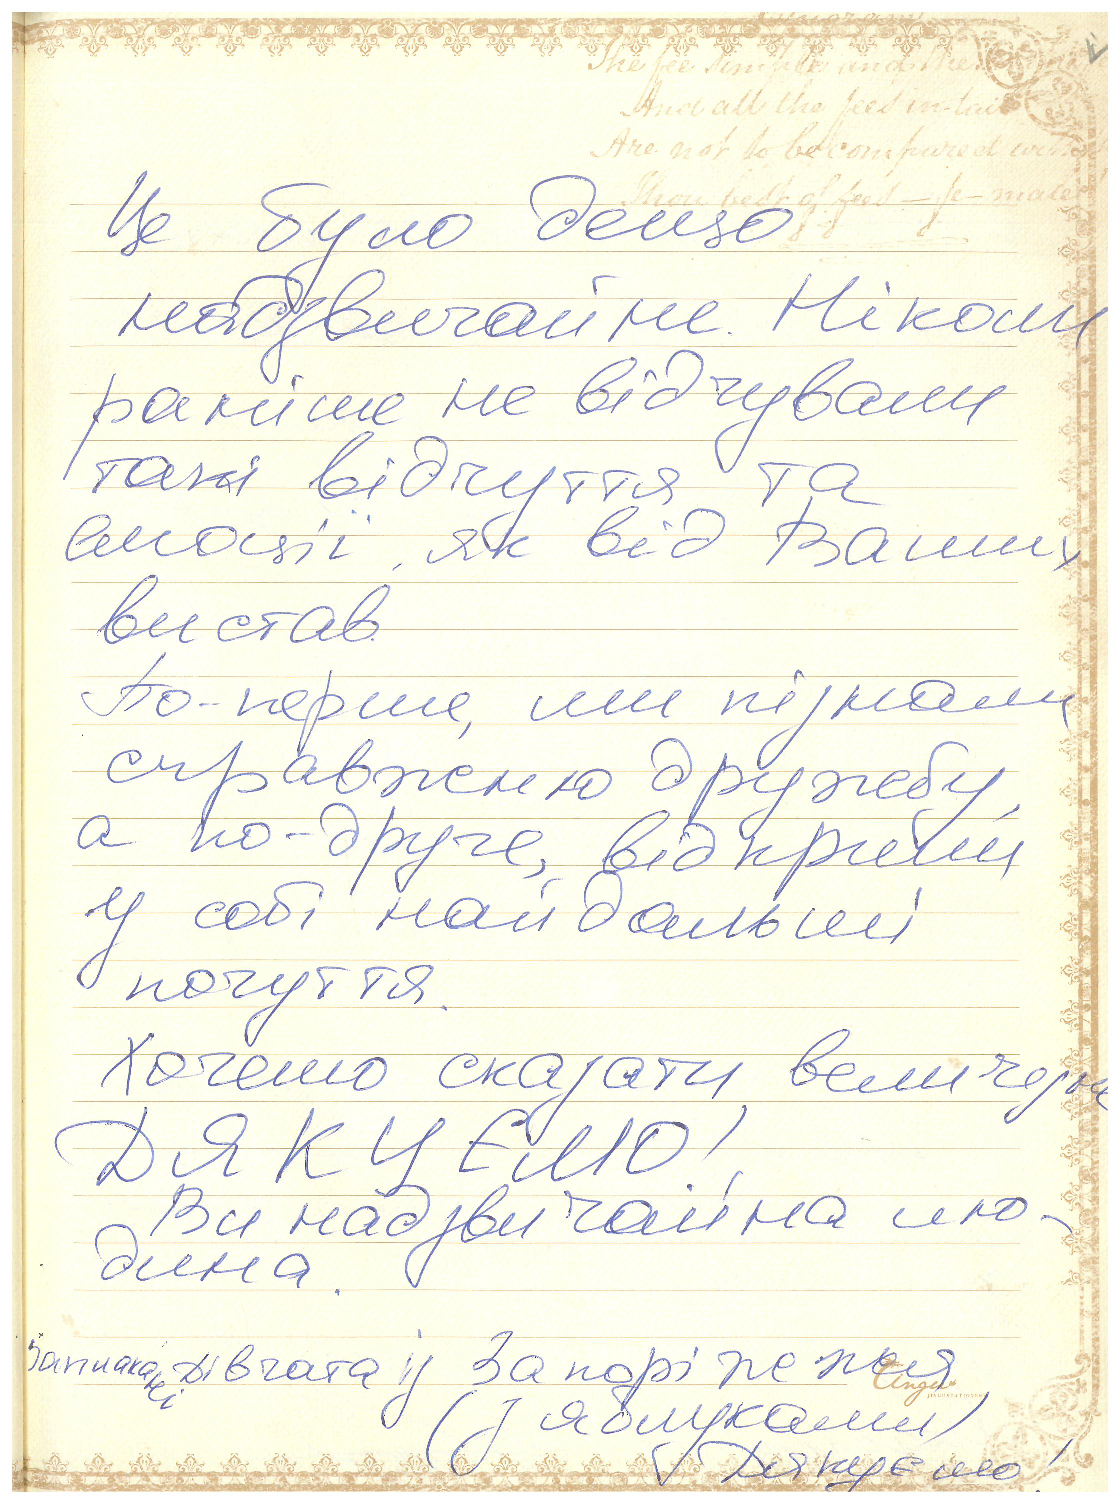 The fee simple and the
And all the fees in-tail
Are not to be compared with
Thou best of fees — fe-male
Це було дещо
надзвичайне. Ніколи
раніше не відчували
такі відчуття та
емоції, як від Ваших
вистав.
По-перше, ми пізнали
справжню дружбу,
а по-друге, відкрили
у собі найдальші
почуття.
Хочемо сказати величезне
ДЯКУЄМО!
Ви надзвичайна лю-
дина.
Заплакані дівчата із Запоріжжя
(з яблуками)
Дякуємо!